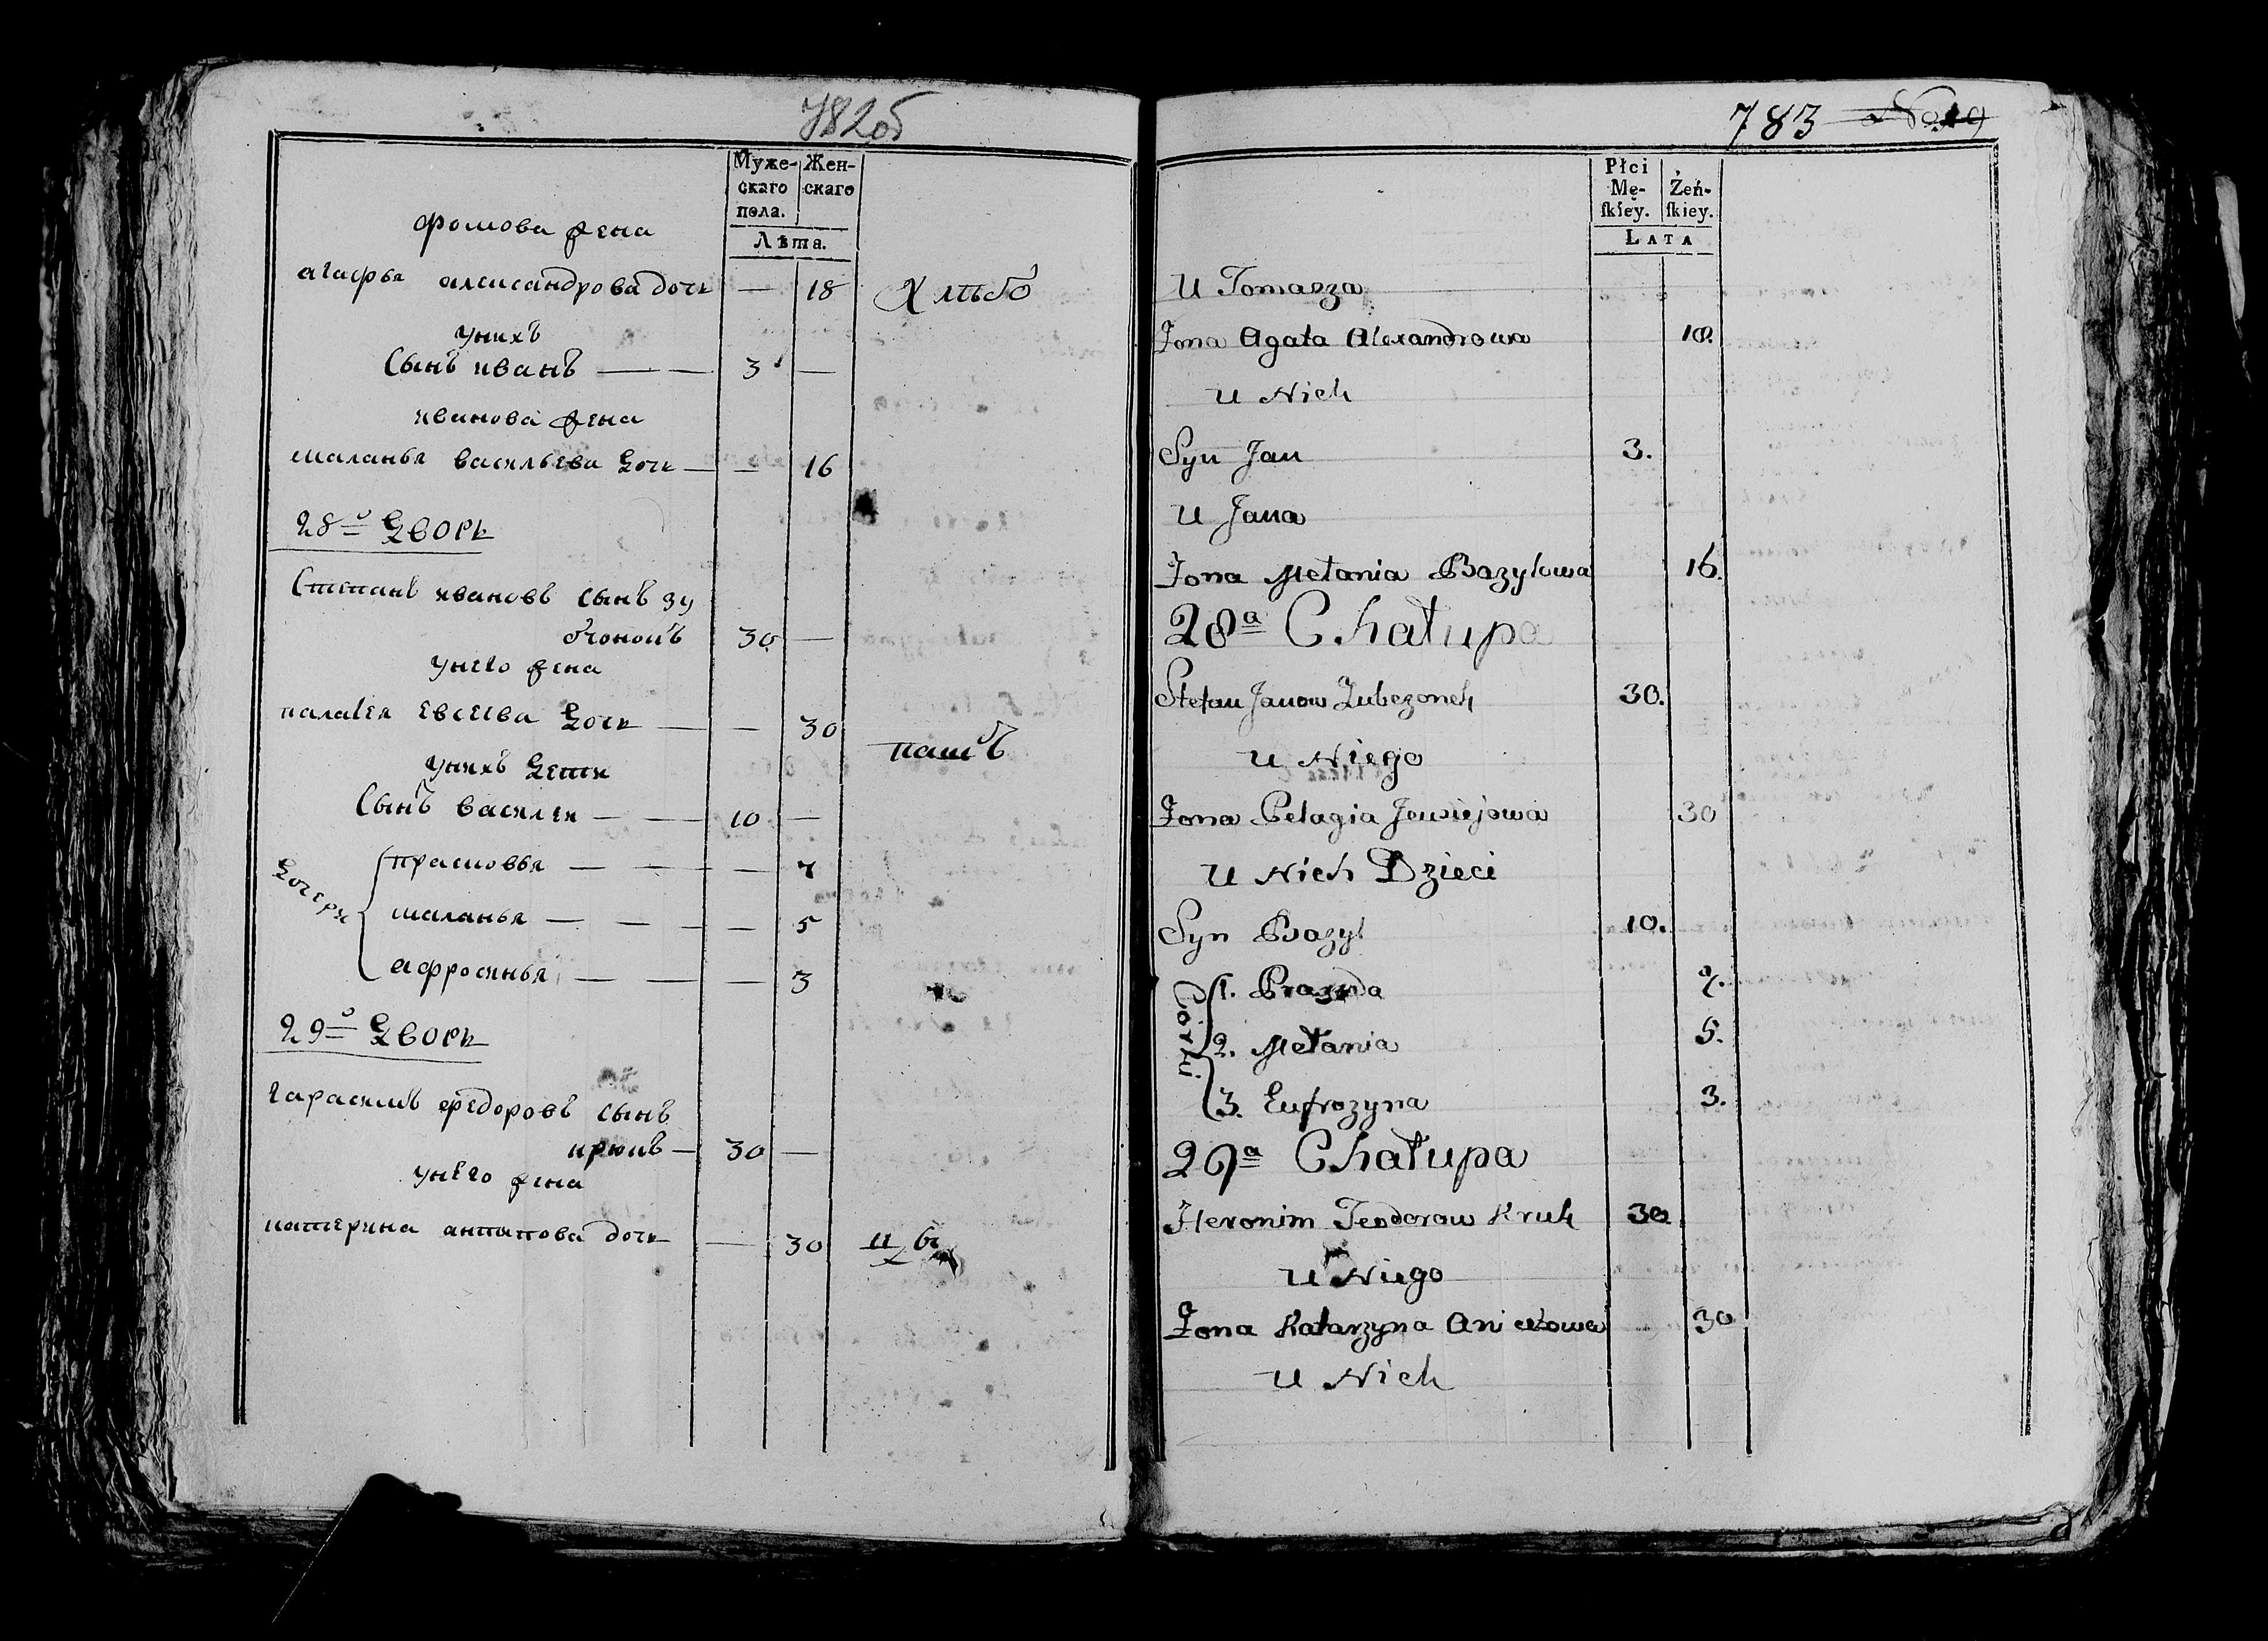 782об
Муже-
скаго
пола.
Жен-
скаго
Лѣта.
фомова жена
агафья александрова дочь — 18
унихъ
Сынъ иванъ — — 3 —
иванова жена
маланья васильева дочь — — 16
28й дворъ
Степанъ ивановъ сынъ зу
бчонокъ 30 —
унего жена
палагея евсеева дочь — — 30
унихъ дети
Сынъ василеи — — 10 —
дочери
прасковья — — — — 7
маланья — — — — 5
афросинья — — — 3
29й дворъ
гарасимъ федоровъ сынъ
крюкъ — 30 —
унего жена
катерина антипова дочь — 30
783 No 19
Płci
Mę-
ſkiey.
Żeń-
ſkiey.
LATA
U Tomasza
Żona Agata Alexandrowa 18.
U Nich
Syn Jan 3.
U Jana
Żona Melania Bazylowa 16.
28a Chałupa
Stefan Janow Zubczonek 30.
U Niego
Żona Pelagia Jewsiejowa 30
U Nich Dzieci
Syn Bazyl 10.
Córki
1. Praseda 7.
2. Melania 5.
3. Eufrozyna 3.
29a Chałupa
Heronim Teodorow Kruk 30.
U Niego
Żona Katarzyna 30
U Nich